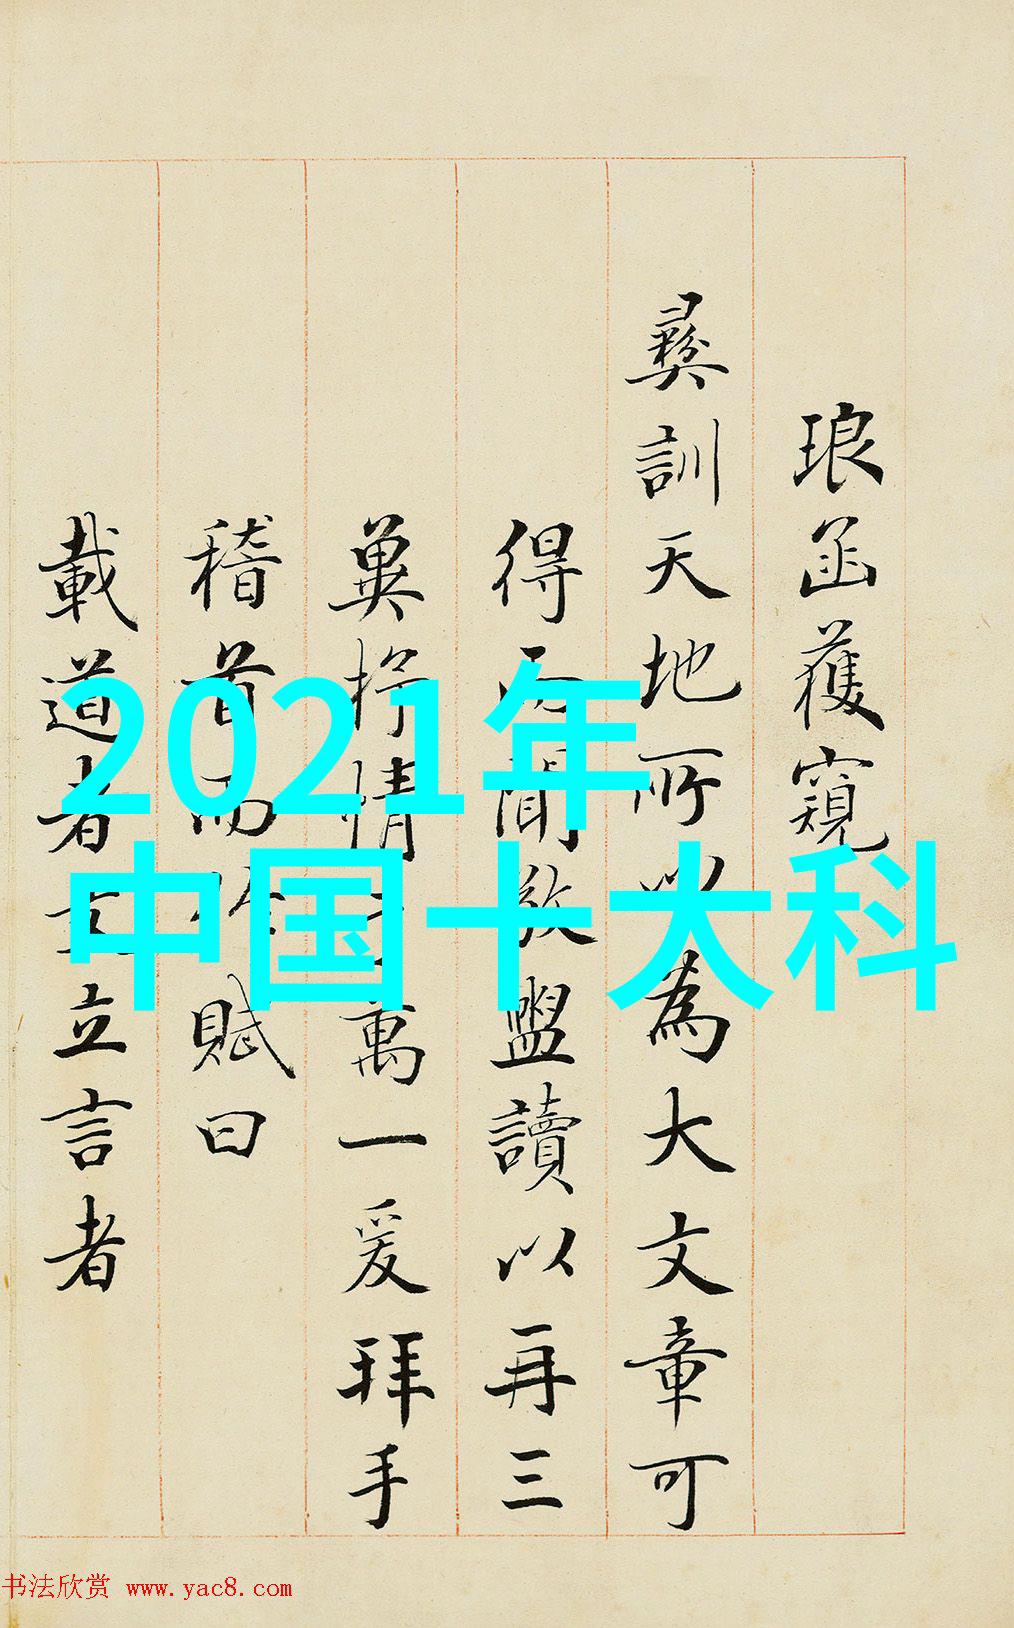 琅函獲窺
彝訓天地所以為大文章可
得而聞敬盥讀以再三
冀抒情萬一爰拜手
稽首而賦曰
載道者文立言者
2021年
中国十大科
书法欣赏 www.yac8.com